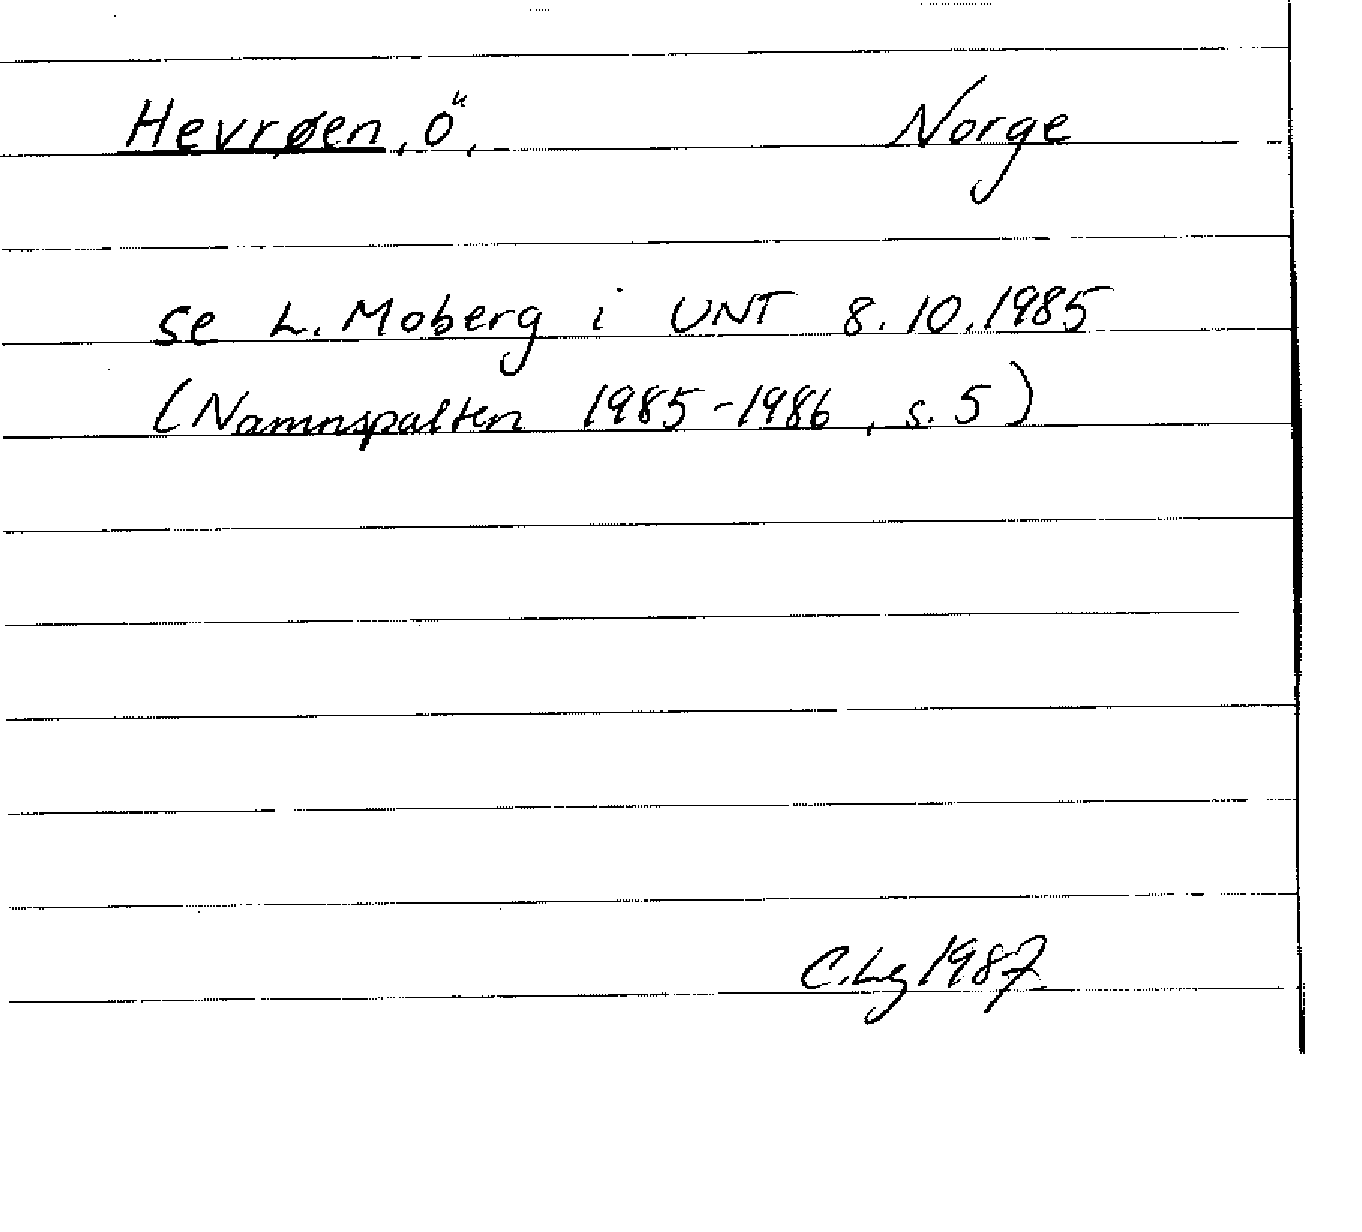 Hevrøen, ö, Norge
se L. Moberg i UNT 8.10.1985
(Namnspalten 1985-1986, s. 5)
C.Lg 1987